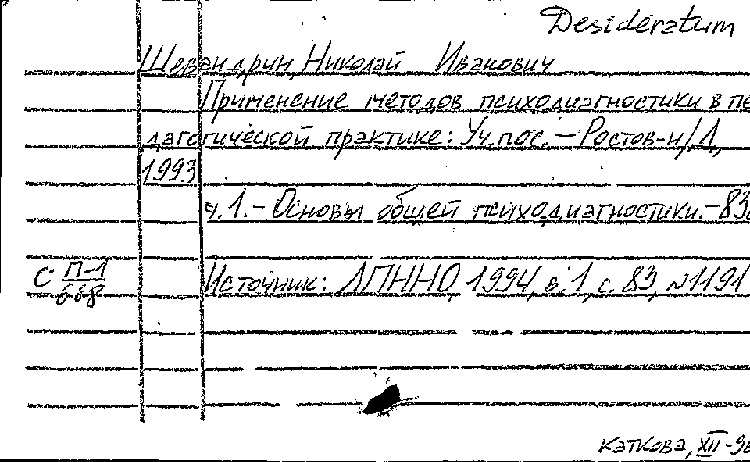 Desideratum
Шевандрин, Николай Иванович
Применение методов психодиагностики в пе
дагогической практике: Уч. пос. — Ростов-н/Д,
1993
ч. 1. - Основы общей психодиагностики. - 83
С П-1
668
Источник: ЛПННО, 1994, в. 1, с. 83, №1191
Каткова, XII-96